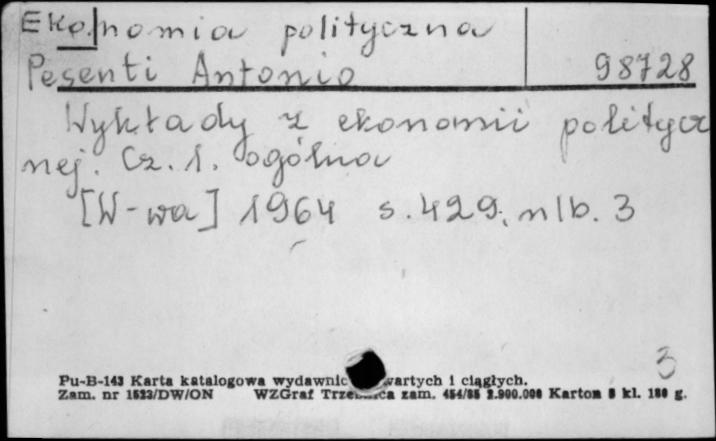 Ekonomia polityczna
Pesenti Antonio 98728
Wykłady z ekonomii politycz
nej. Cz. 1. ogólna
[W-wa] 1964 s. 429, nlb. 3
3
Pu-B-143 Karta katalogowa wydawnic wartych i ciągłych.
Zam. nr 1523/DW/ON WZGraf zam. 454/85 2.900.000 Karton kl. g.